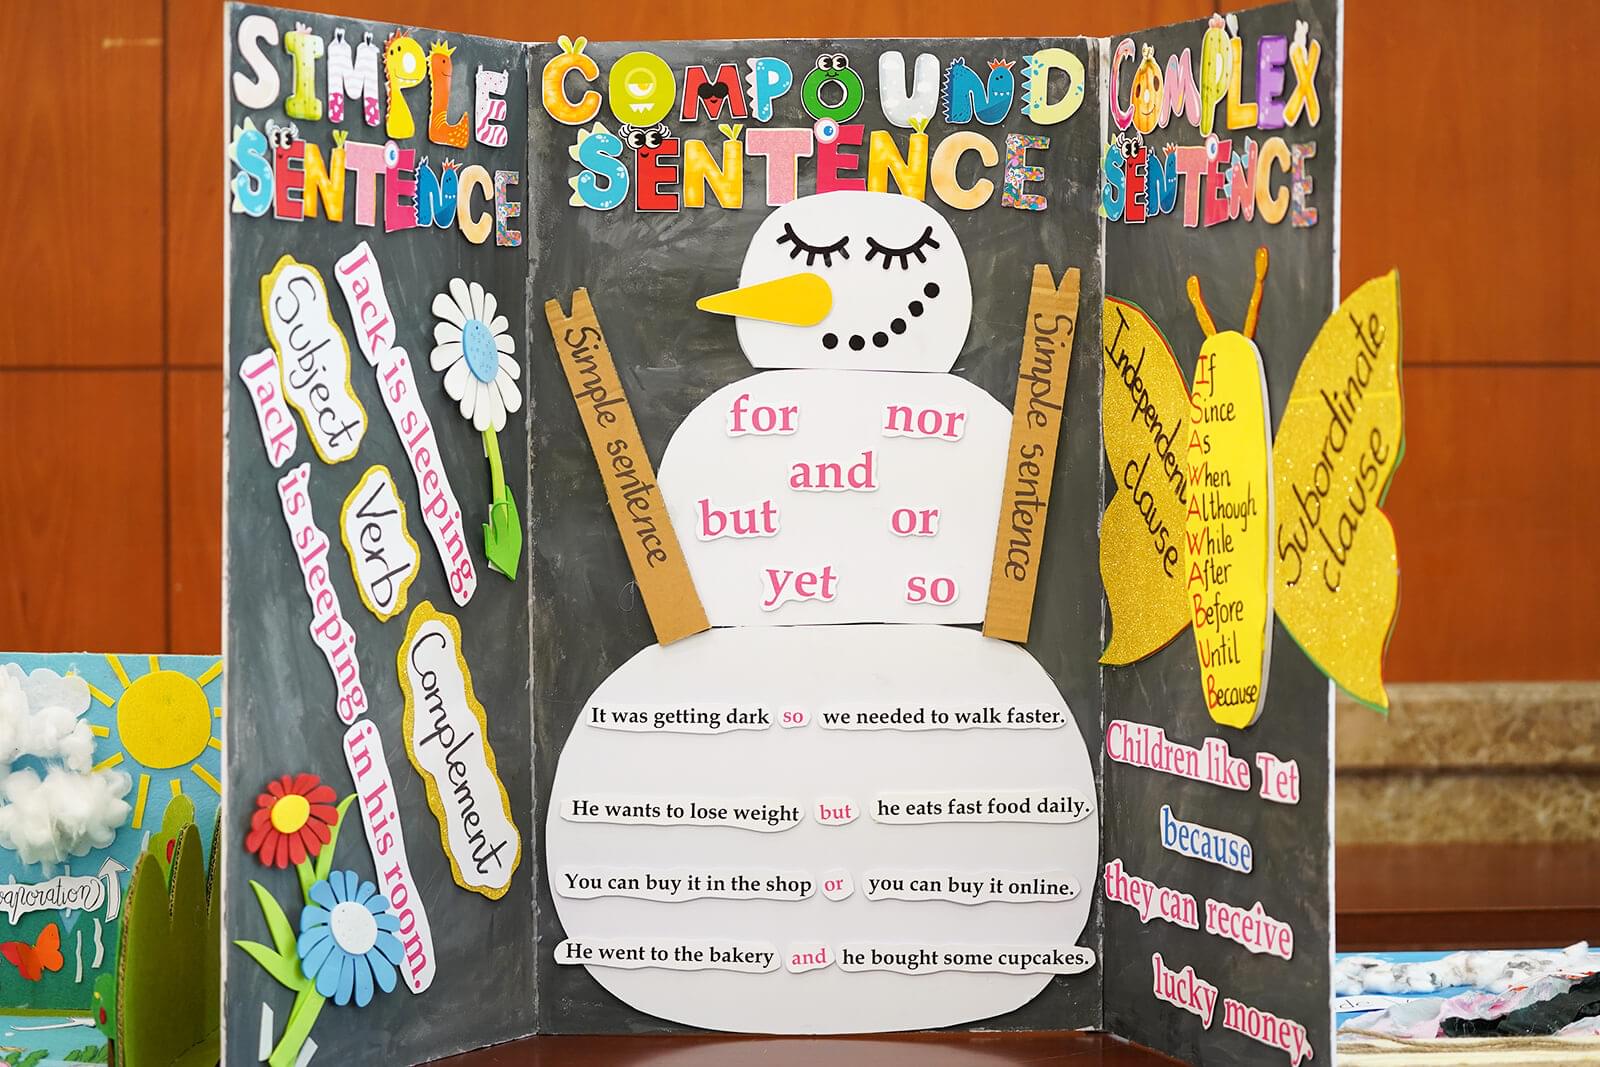 SIMPLE
SENTENCE
Subject
Jack is sleeping.
Verb
Jack is sleeping in his room.
Complement
COMPOUND
SENTENCE
Simple sentence
Simple sentence
for nor
and
but or
yet so
It was getting dark so we needed to walk faster.
He wants to lose weight but he eats fast food daily.
You can buy it in the shop or you can buy it online.
He went to the bakery and he bought some cupcakes.
COMPLEX
SENTENCE
Independent
clause
If
Since
As
When
Although
While
After
Before
Until
Because
Subordinate
clause
Children like Tet
because
they can receive
lucky money.